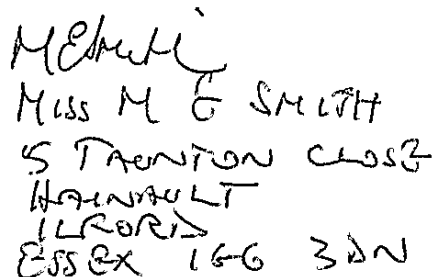 MESmith
MISS M E SMITH
5 TAUNTON CLOSE
HAINAULT
ILFORD
ESSEX IG6 3DN